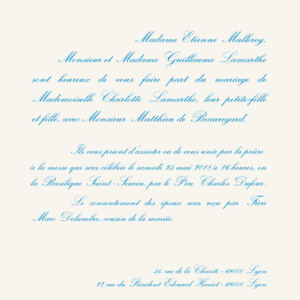 Madame Etienne Mallerey,
Monsieur et Madame Guillaume Lamarthe
sont heureux de vous faire part du mariage de
Mademoiselle Charlotte Lamarthe, leur petite-fille
et fille, avec Monsieur Matthieu de Beauregard.
Ils vous prient d'assister ou de vous unir par la prière
à la messe qui sera célébrée le samedi 23 mai 2018 à 16 heures, en
la Basilique Saint-Seurin, par le Père Charles Dufour.
Le consentement des époux sera reçu par Frère
Marc Delambre, cousin de la mariée.
54, rue de la Charité - 69000 Lyon
27, rue du Président Edouard Herriot - 69000 Lyon